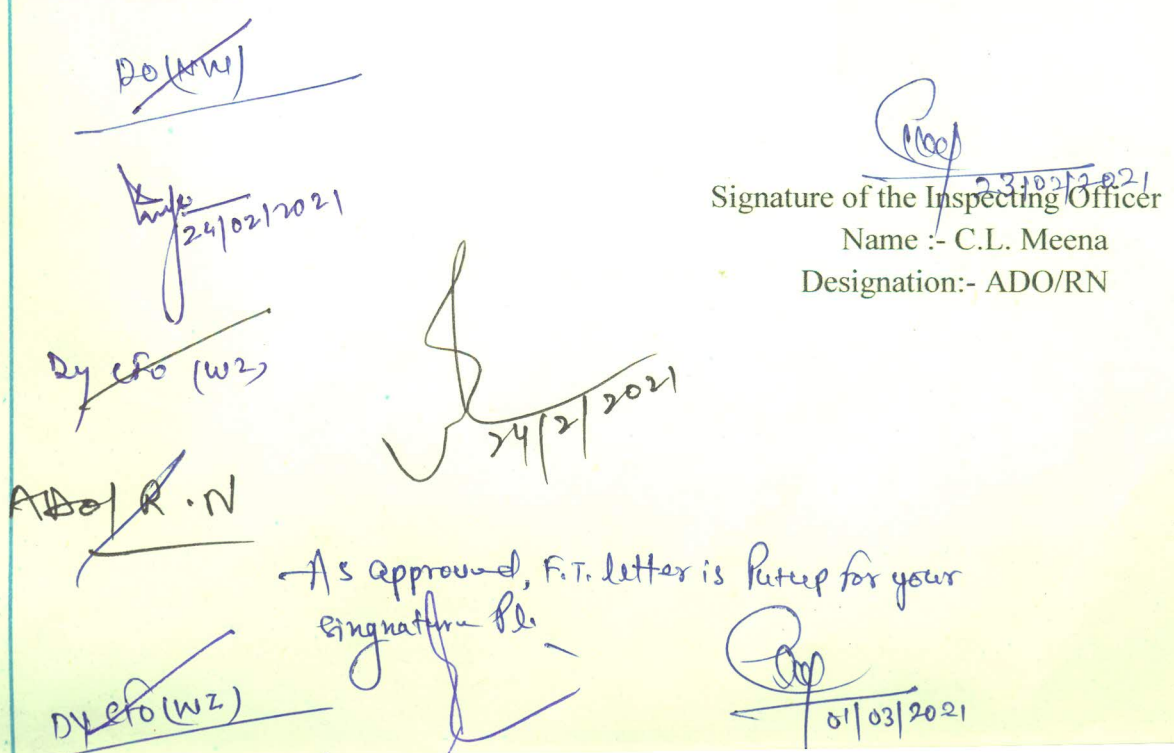 DO(NW)
23/02/2021
Signature of the Inspecting Officer
Name :- C.L. Meena
Designation:- ADO/RN
24/02/2021
Dy CFO (WZ)
24/2/2021
ADO/R.N
As approved, F.T. letter is Putup for your
Singnature Pl.
Dy CFO (WZ)
01/03/2021